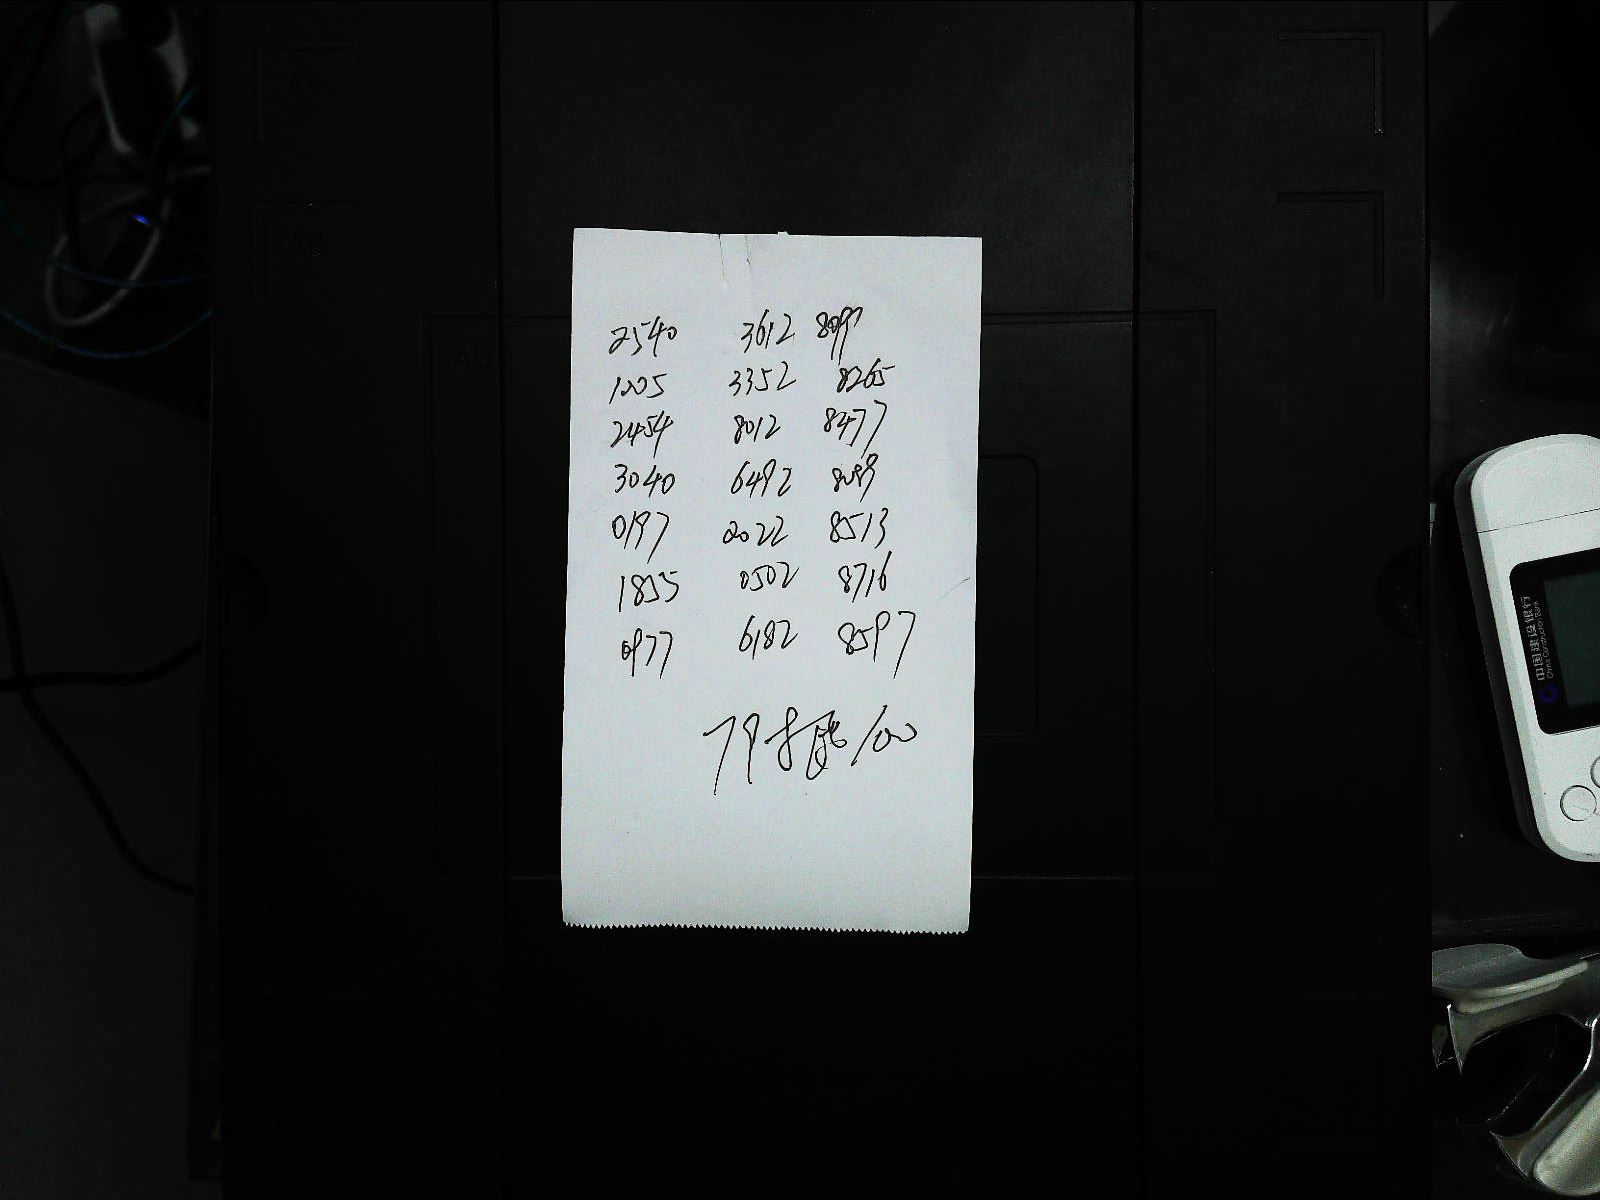 2540 3612 8097
1005 3352 8265
2454 8012 8477
3040 6492 8089
0197 2022 8513
1855 0502 8716
0977 6182 8597
100
中国建设银行
China Construction Bank